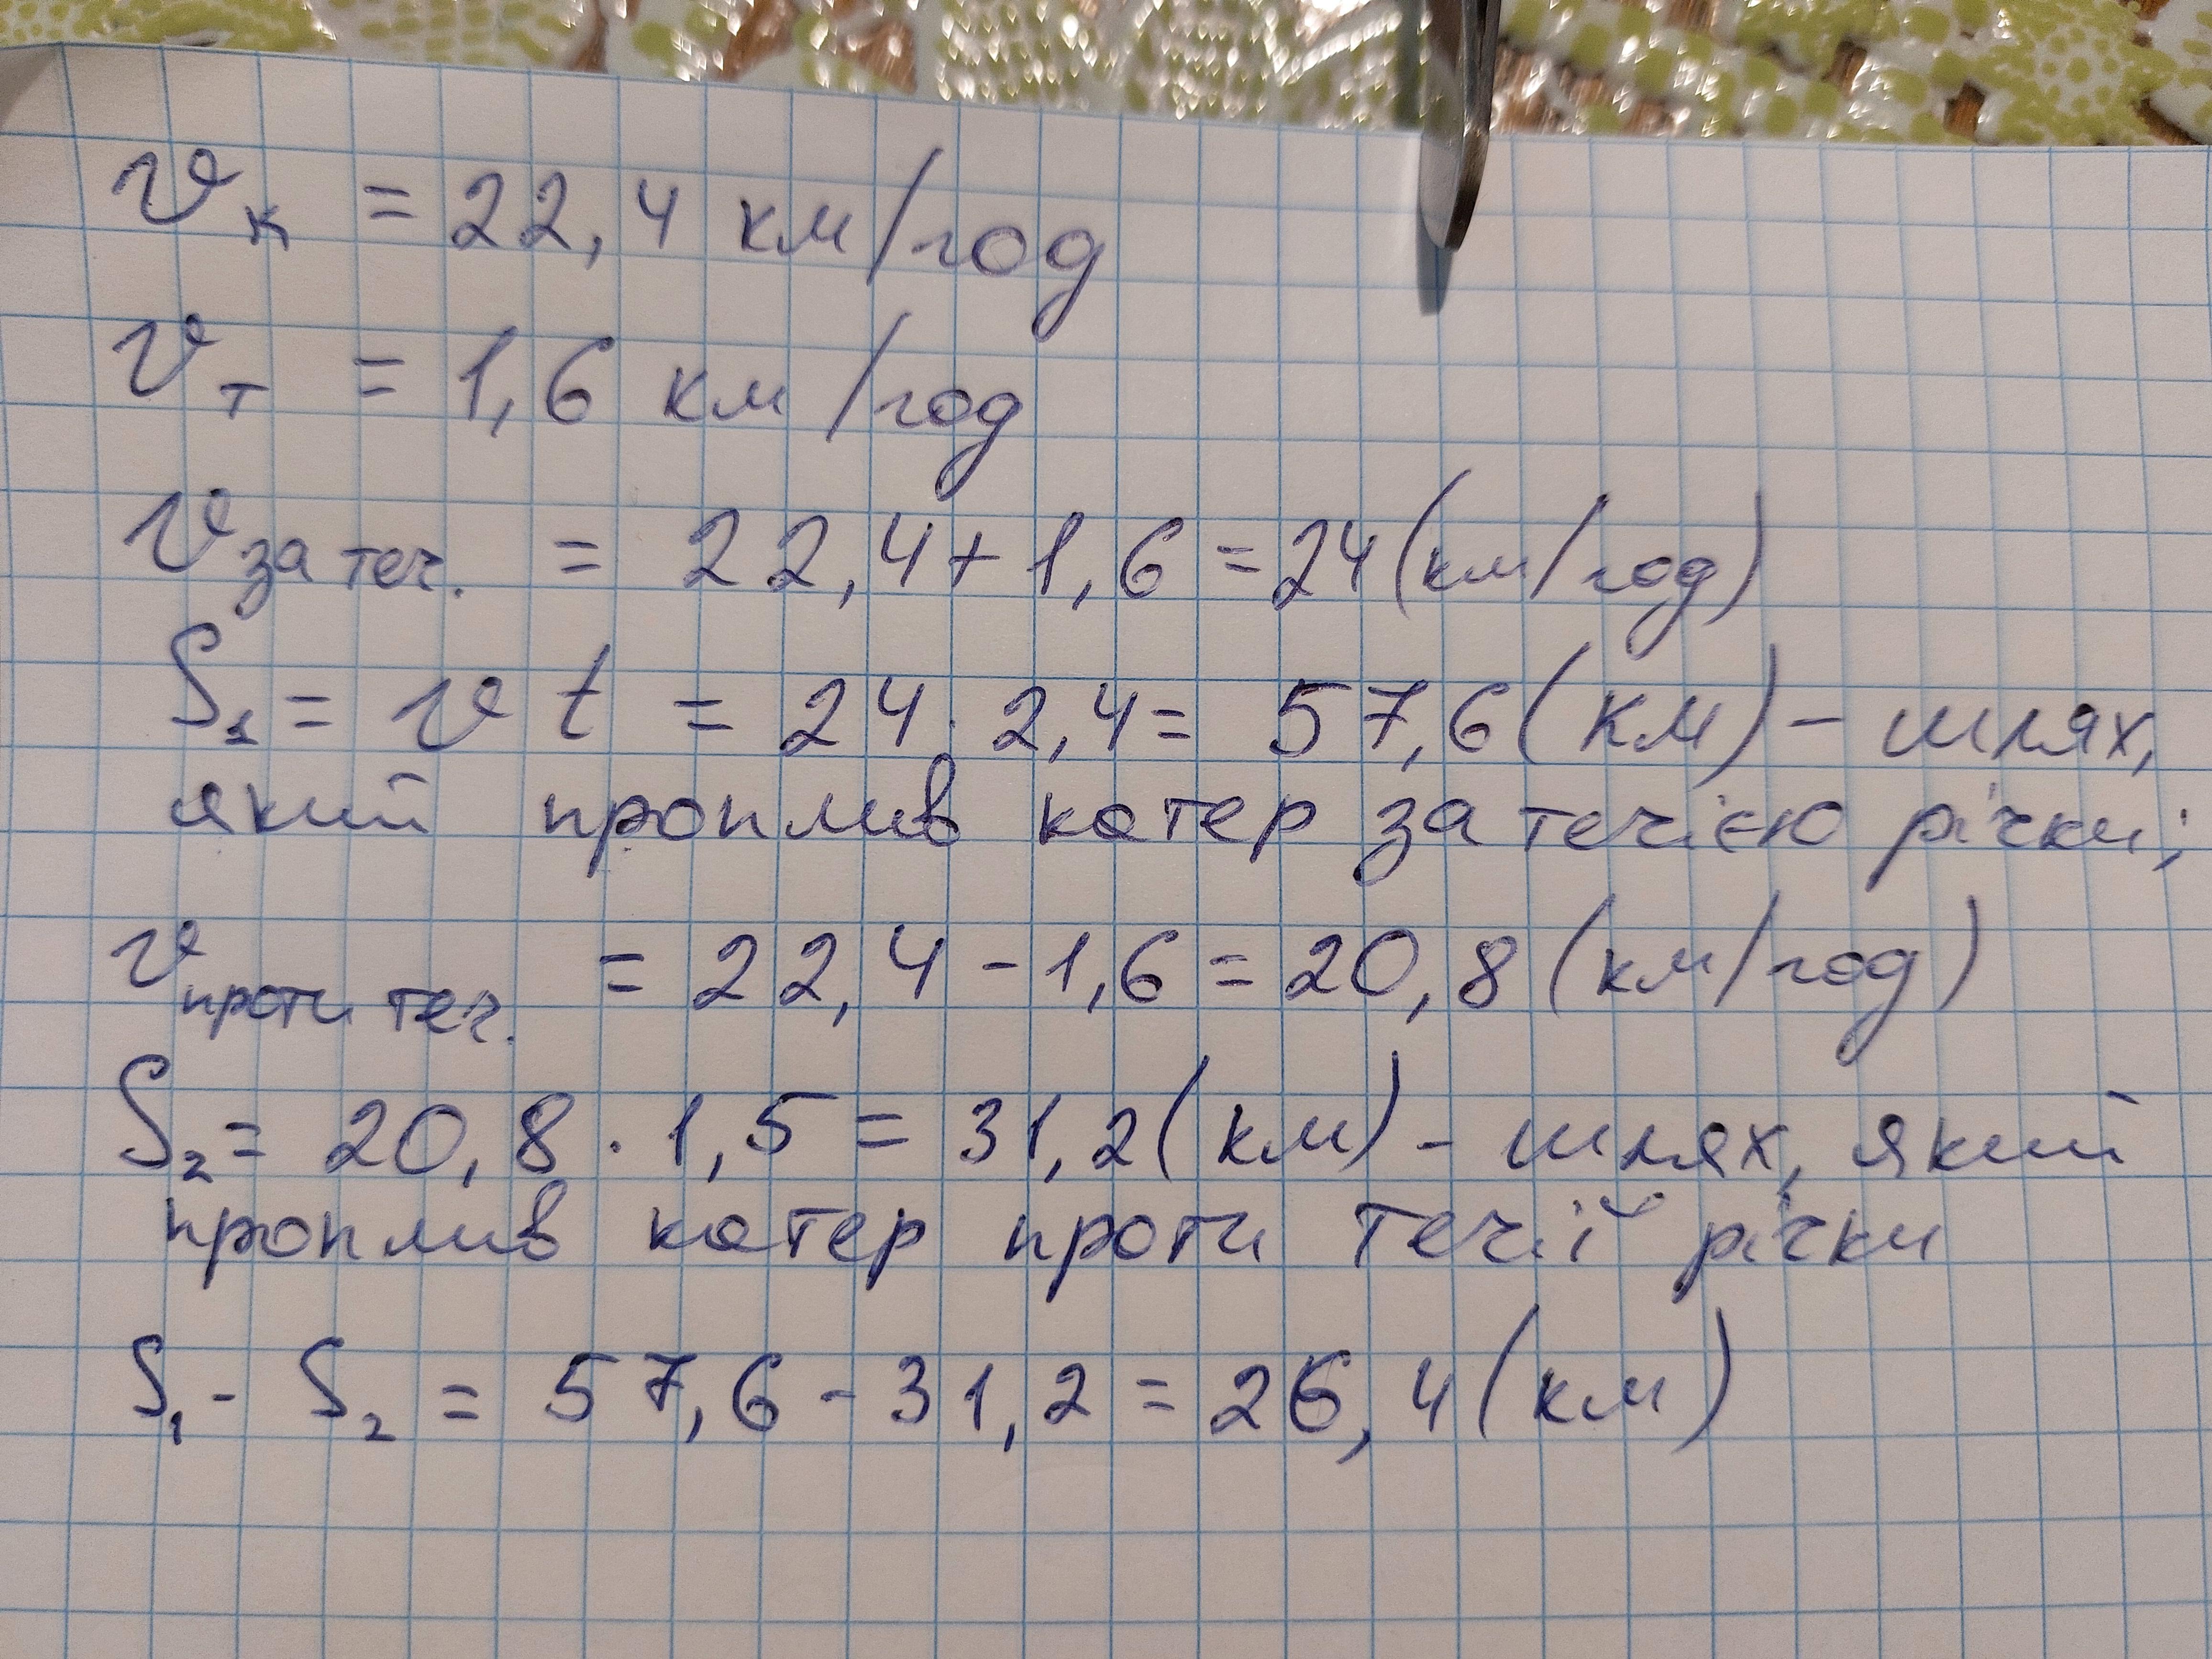 v к = 22,4 км/год
v т = 1,6 км/год
v за теч. = 22,4 + 1,6 = 24 (км/год)
S₁ = v t = 24 · 2,4 = 57,6 (км) – шлях,
який проплив катер за течією річки;
v проти теч. = 22,4 – 1,6 = 20,8 (км/год)
S₂ = 20,8 · 1,5 = 31,2 (км) – шлях, який
проплив катер проти течії річки
S₁ - S₂ = 57,6 – 31,2 = 26,4 (км)